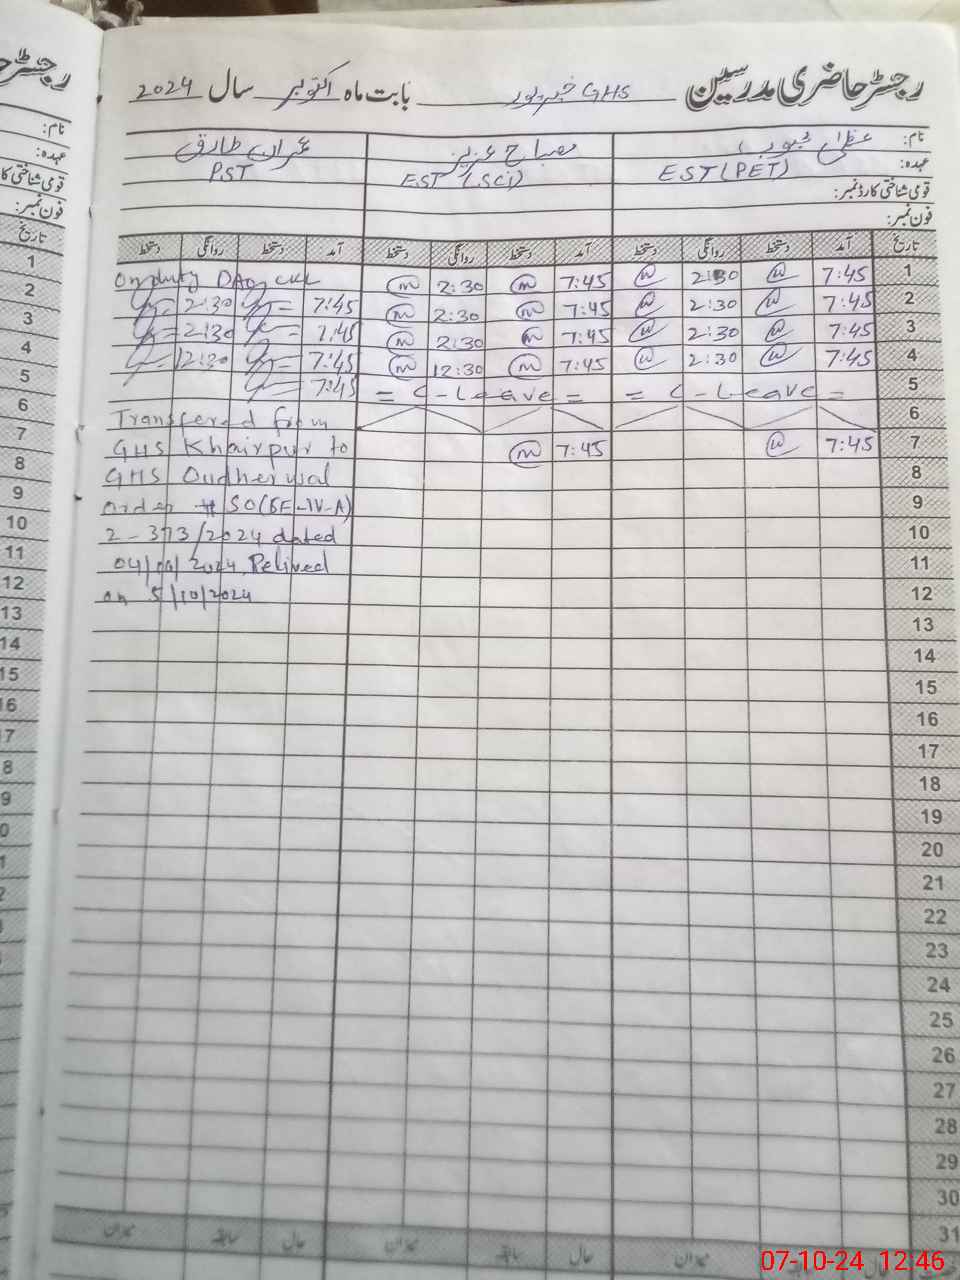 رجسٹر حاضری مدرسین GHS خیرپور بابت ماہ اکتوبر سال 2024
نام: عظمیٰ مصباح عزیز عمران طارق
عہدہ: EST (PET) EST (SCI) PST
قومی شناختی کارڈ نمبر:
فون نمبر:
تاریخ آمد دستخط روانگی دستخط آمد دستخط روانگی دستخط آمد دستخط روانگی دستخط
1 7:45 2:30 7:45 2:30 On duty
2 7:45 2:30 7:45 2:30 7:45 2:30
3 7:45 2:30 7:45 2:30 7:45 2:30
4 7:45 2:30 7:45 12:30 7:45 12:30
5 = C-Leave = = C-Leave = 7:45
6 Transfered from
7 7:45 7:45 GHS Khairpur to
8 GHS Oudherwal
9 order # SO(SE-IV-A)
10 2-373/2024 dated
11 2024 Relived
12 on 5/10/2024
13
14
15
16
17
18
19
20
21
22
23
24
25
26
27
28
29
30
31
حال سابقہ میزان حال سابقہ میزان حال سابقہ میزان
رجسٹر
نام:
عہدہ:
قومی شناختی
فون نمبر:
تاریخ
1
2
3
4
5
6
7
8
9
10
11
12
13
14
15
16
07-10-24 12:46